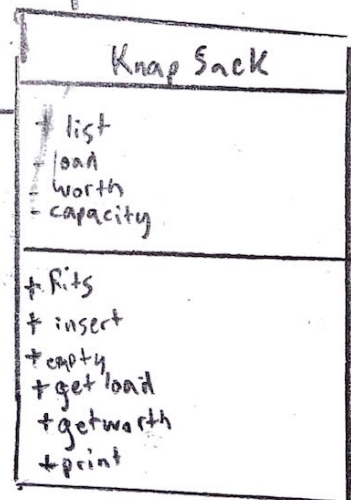 Knap Sack
+ list
- load
- worth
- capacity
+ fits
+ insert
+ empty
+ get load
+ getworth
+ print